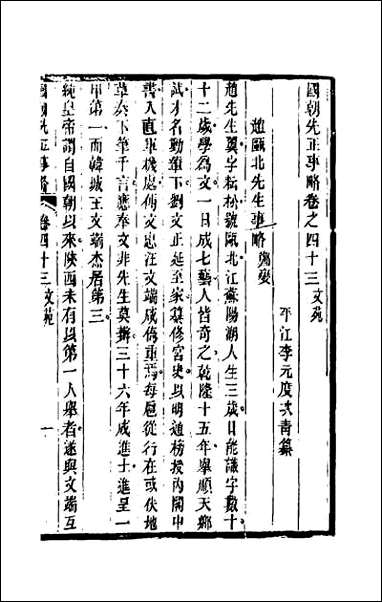 國朝先正事略卷之四十三文苑
平江李元度次青纂
趙甌北先生事略
趙先生翼字耘松號甌北江蘇陽湖人生三歲日能識字數十
十二歲學為文一日成七藝人皆奇之乾隆十五年舉順天鄉
試才名動輦下劉文正延至家纂修宮史以明通榜授內閣中
書入直軍機處傅文忠汪文端咸倚重焉每扈從行在或伏地
草奏下筆千言應奉文非先生莫辦三十六年成進士進呈一
甲第一而韓城王文端杰居第三
純皇帝謂自國朝以來陝西未有以第一人舉者遂與文端互
國朝先正事略 卷四十三文苑 一